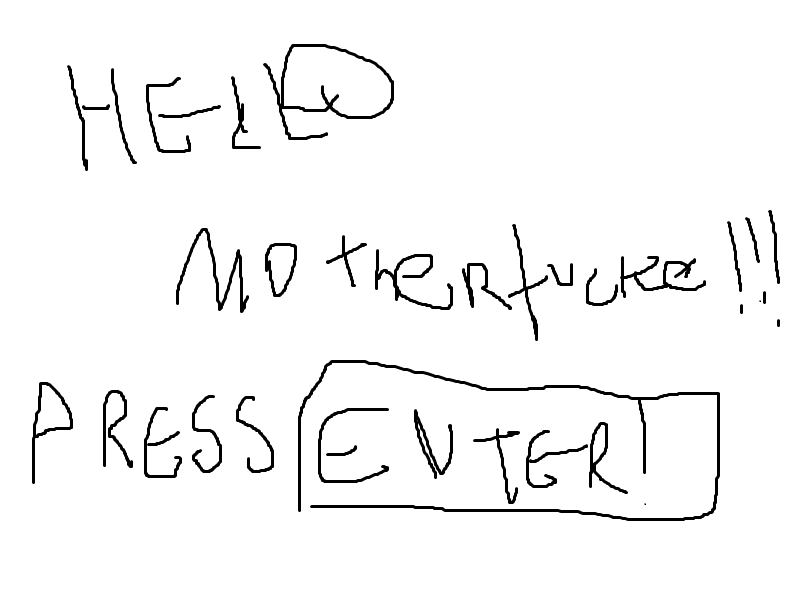 HELLO
MOtherfucker!!!
PRESS ENTER!